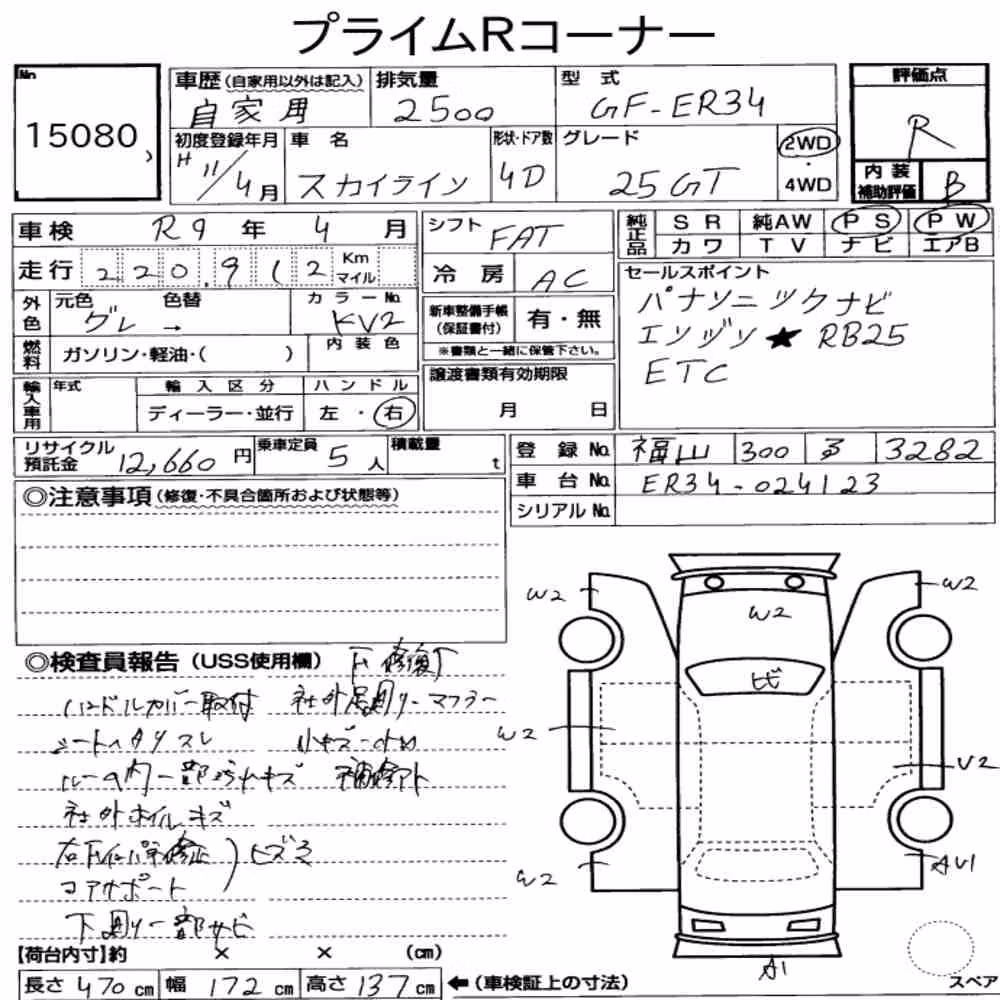 プライムRコーナー
No.
15080
車歴(自家用以外は記入)
自家用
排気量
2500
型式
GF-ER34
評価点
R
初度登録年月
H 11/4月
車名
スカイライン
形状・ドア数
4D
グレード
25GT
2WD
・
4WD
内装
補助評価
B
車検 R9年 4月
走行 220,912 Km マイル
シフト FAT
冷房 AC
純正品
SR 純AW PS PW
カワ TV ナビ エアB
外色
元色 色替
グレ→
カラーNo.
KV2
燃料
ガソリン・軽油・( )
内装色
新車整備手帳
(保証書付)
有・無
※書類と一緒に保管下さい。
セールスポイント
パナソニックナビ
エンジン★RB25
ETC
輸入車用
年式
輸入区分
ディーラー・並行
ハンドル
左・右
譲渡書類有効期限
月 日
リサイクル
預託金
12,660円
乗車定員 5人
積載量 t
登録No. 福山 300 る 3282
車台No. ER34-024123
シリアルNo.
◎注意事項(修復・不具合箇所および状態等)
◎検査員報告(USS使用欄)
ハンドルカバー取付 社外足廻り・マフラー
シートヘタリ スレ 小キズ・小凹
ルーム内一部汚れキズ 補修アト
社外ホイルキズ
コアサポート
ヒズミ
下廻り一部サビ
W2
W2
W2
ヒビ
W2
W2
AU1
A1
スペア
【荷台内寸】約 × × (cm)
長さ 470cm 幅 172cm 高さ 137cm
←(車検証上の寸法)